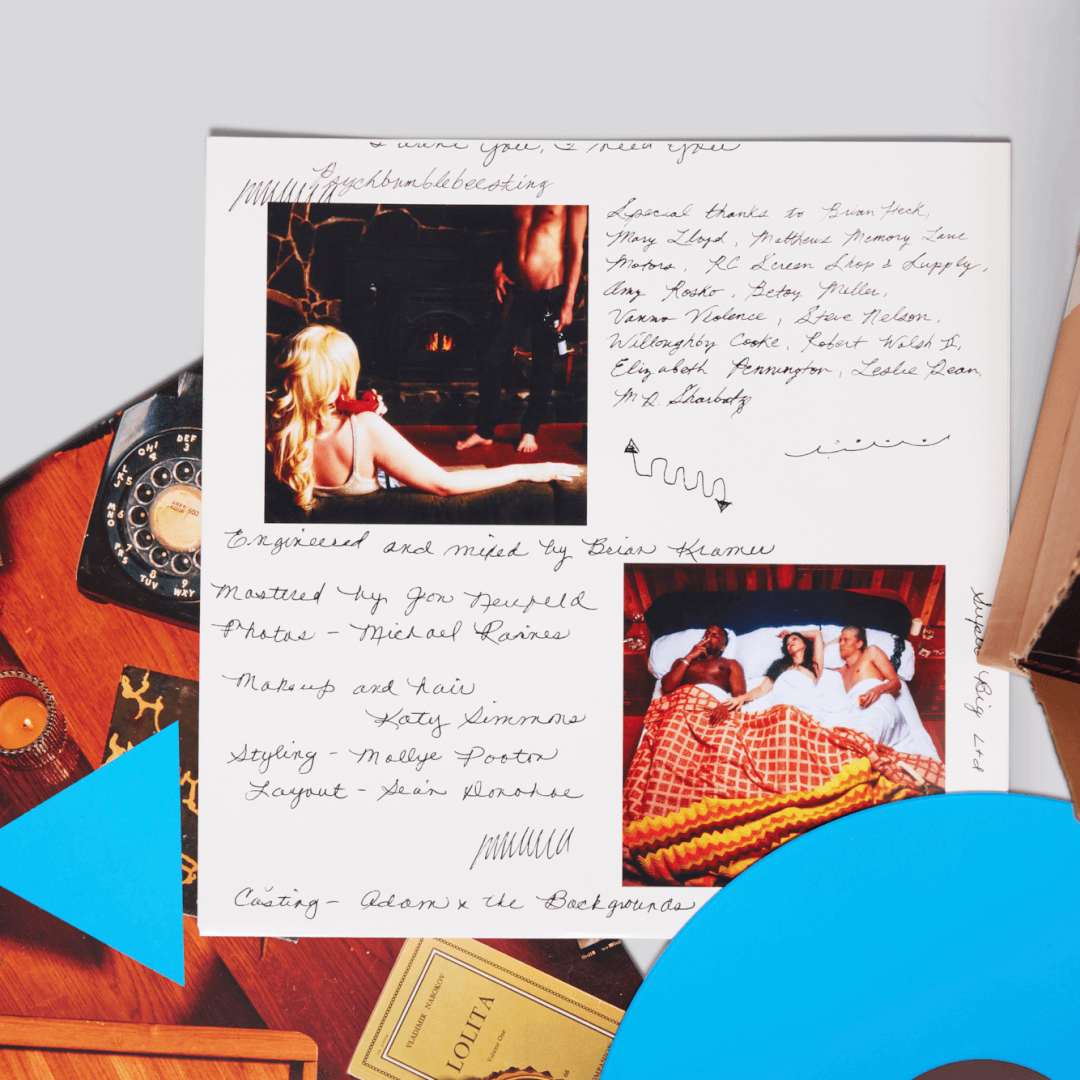 I want You, I need You
Psychbumblebeesting
Special thanks to Brian Heck,
Mary Lloyd, Matthews Memory Lane
Motors, RC Screen Shop & Supply,
Amy Rosko, Betsy Miller,
Vanna Violence, Steve Nelson,
Willoughby Cooke, Robert Walsh II,
Elizabeth Pennington, Leslie Dean,
M.R. Sharbatz
Engineered and mixed by Brian Kramer
Mastered by Jon Neufeld
Photos - Michael Raines
Makeup and hair
Katy Simmons
Styling - Mollye Pooton
Layout - Seán Donohoe
Super Big Ltd
Casting - Adam x the Backgrounds
DEF
3
GHI
4
JKL
5
MNO
6
PRS
7
TUV
8
WXY
9
VLADIMIR NABOKOV
LOLITA
Volume One
66